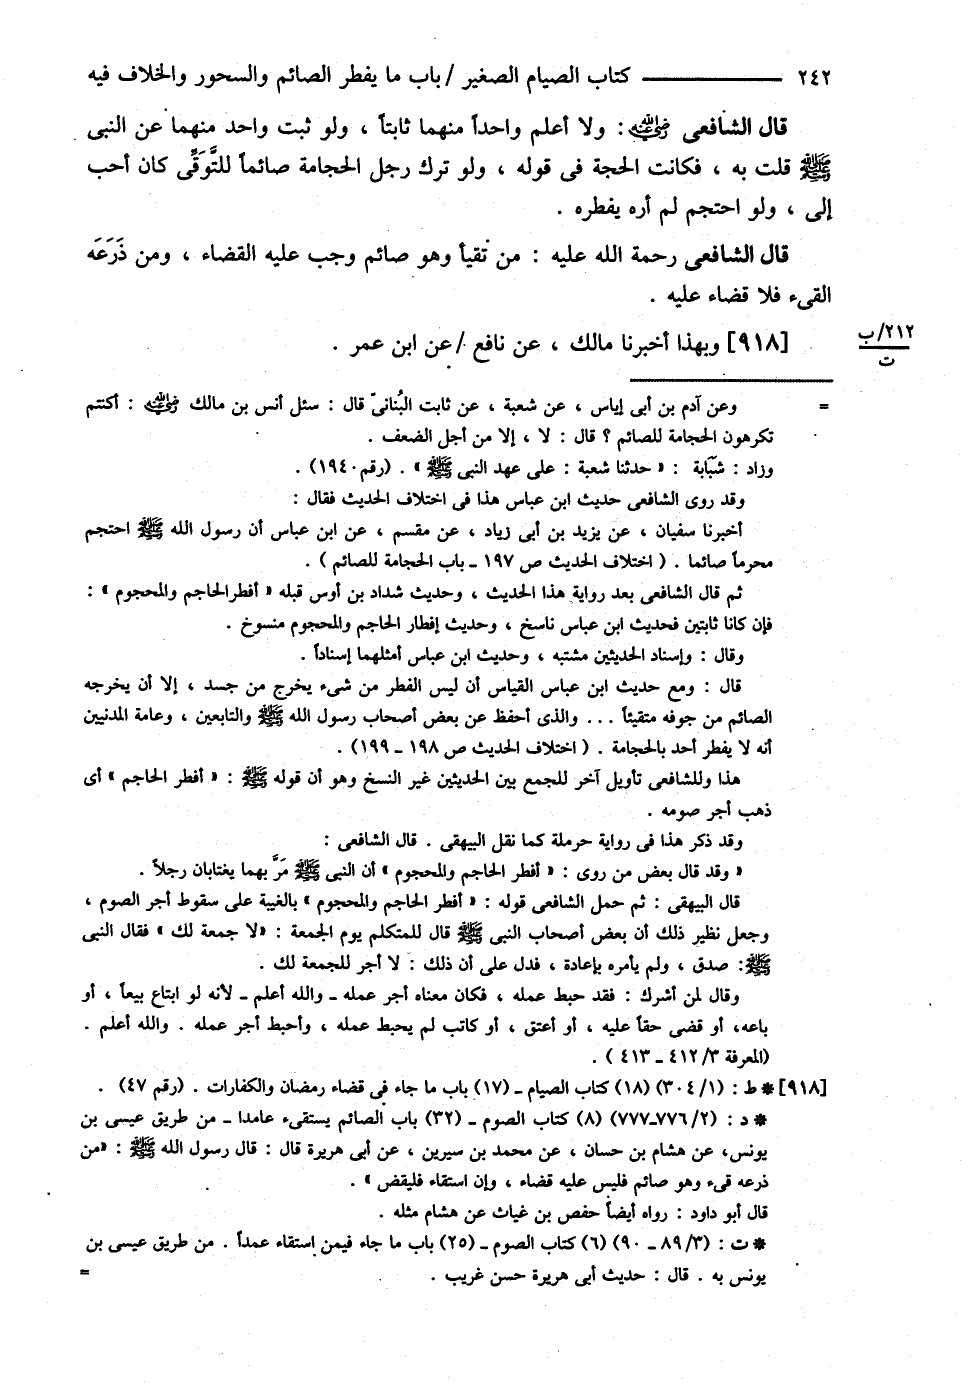 ٢٤٢ ــــــــــ كتاب الصيام الصغير / باب ما يفطر الصائم والسحور والخلاف فيه
قال الشافعى رضي الله عنه : ولا أعلم واحداً منهما ثابتاً ، ولو ثبت واحد منهما عن النبى
ﷺ قلت به ، فكانت الحجة فى قوله ، ولو ترك رجل الحجامة صائماً للتَّوَقِّى كان أحب
إلى ، ولو احتجم لم أره يفطره .
قال الشافعى رحمة الله عليه : من تقيأ وهو صائم وجب عليه القضاء ، ومن ذَرَعَه
القىء فلا قضاء عليه .
[٩١٨] وبهذا أخبرنا مالك ، عن نافع / عن ابن عمر .
٢١٢/ب
ت
= وعن آدم بن أبى إياس ، عن شعبة ، عن ثابت البُنانىّ قال : سئل أنس بن مالك رضي الله عنه : أكنتم
تكرهون الحجامة للصائم ؟ قال : لا ، إلا من أجل الضعف .
وزاد : شَبَّابة : « حدثنا شعبة : على عهد النبى ﷺ » . (رقم ١٩٤٠) .
وقد روى الشافعى حديث ابن عباس هذا فى اختلاف الحديث فقال :
أخبرنا سفيان ، عن يزيد بن أبى زياد ، عن مقسم ، عن ابن عباس أن رسول الله ﷺ احتجم
محرماً صائما . ( اختلاف الحديث ص ١٩٧ ـ باب الحجامة للصائم ) .
ثم قال الشافعى بعد رواية هذا الحديث ، وحديث شداد بن أوس قبله « أفطرالحاجم والمحجوم » :
فإن كانا ثابتين فحديث ابن عباس ناسخ ، وحديث إفطار الحاجم والمحجوم منسوخ .
وقال : وإسناد الحديثين مشتبه ، وحديث ابن عباس أمثلهما إسناداً .
قال : ومع حديث ابن عباس القياس أن ليس الفطر من شىء يخرج من جسد ، إلا أن يخرجه
الصائم من جوفه متقيئاً ... والذى أحفظ عن بعض أصحاب رسول الله ﷺ والتابعين ، وعامة المدنيين
أنه لا يفطر أحد بالحجامة . ( اختلاف الحديث ص ١٩٨ ـ ١٩٩) .
هذا وللشافعى تأويل آخر للجمع بين الحديثين غير النسخ وهو أن قوله ﷺ : « أفطر الحاجم » أى
ذهب أجر صومه .
وقد ذكر هذا فى رواية حرملة كما نقل البيهقى . قال الشافعى :
« وقد قال بعض من روى : « أفطر الحاجم والمحجوم » أن النبى ﷺ مَرَّ بهما يغتابان رجلاً .
قال البيهقى : ثم حمل الشافعى قوله : « أفطر الحاجم والمحجوم » بالغيبة على سقوط أجر الصوم ،
وجعل نظير ذلك أن بعض أصحاب النبى ﷺ قال للمتكلم يوم الجمعة : «لا جمعة لك » فقال النبى
ﷺ: صدق ، ولم يأمره بإعادة ، فدل على أن ذلك : لا أجر للجمعة لك .
وقال لمن أشرك : فقد حبط عمله ، فكان معناه أجر عمله ـ والله أعلم ـ لأنه لو ابتاع بيعاً ، أو
باعه، أو قضى حقاً عليه ، أو أعتق ، أو كاتب لم يحبط عمله ، وأحبط أجر عمله . والله أعلم .
(المعرفة ٣/ ٤١٢ ـ ٤١٣ ) .
[٩١٨] * ط : (١/ ٣٠٤) (١٨) كتاب الصيام ـ (١٧) باب ما جاء فى قضاء رمضان والكفارات . (رقم ٤٧) .
* د : (٢/ ٧٧٦ـ٧٧٧) (٨) كتاب الصوم ـ (٣٢) باب الصائم يستقىء عامدا ـ من طريق عيسى بن
يونس، عن هشام بن حسان ، عن محمد بن سيرين ، عن أبى هريرة قال : قال رسول الله ﷺ : «من
ذرعه قىء وهو صائم فليس عليه قضاء ، وإن استقاء فليقض » .
قال أبو داود : رواه أيضاً حفص بن غياث عن هشام مثله .
* ت : (٣/ ٨٩ ـ ٩٠) (٦) كتاب الصوم ـ (٢٥) باب ما جاء فيمن استقاء عمداً . من طريق عيسى بن
يونس به . قال : حديث أبى هريرة حسن غريب . =